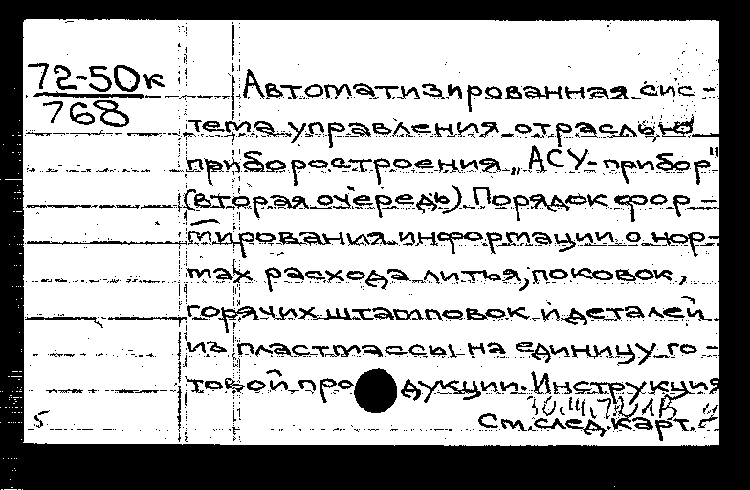 72-50к
768
Автоматизированная сис-
тема управления отраслью
приборостроения „АСУ-прибор"
(вторая очередь). Порядок фор-
мирования информации о нор-
мах расхода литья, поковок,
горячих штамповок и деталей
из пластмассы на единицу го-
товой продукции. Инструкция
30.III.72
См. след. карт.
5